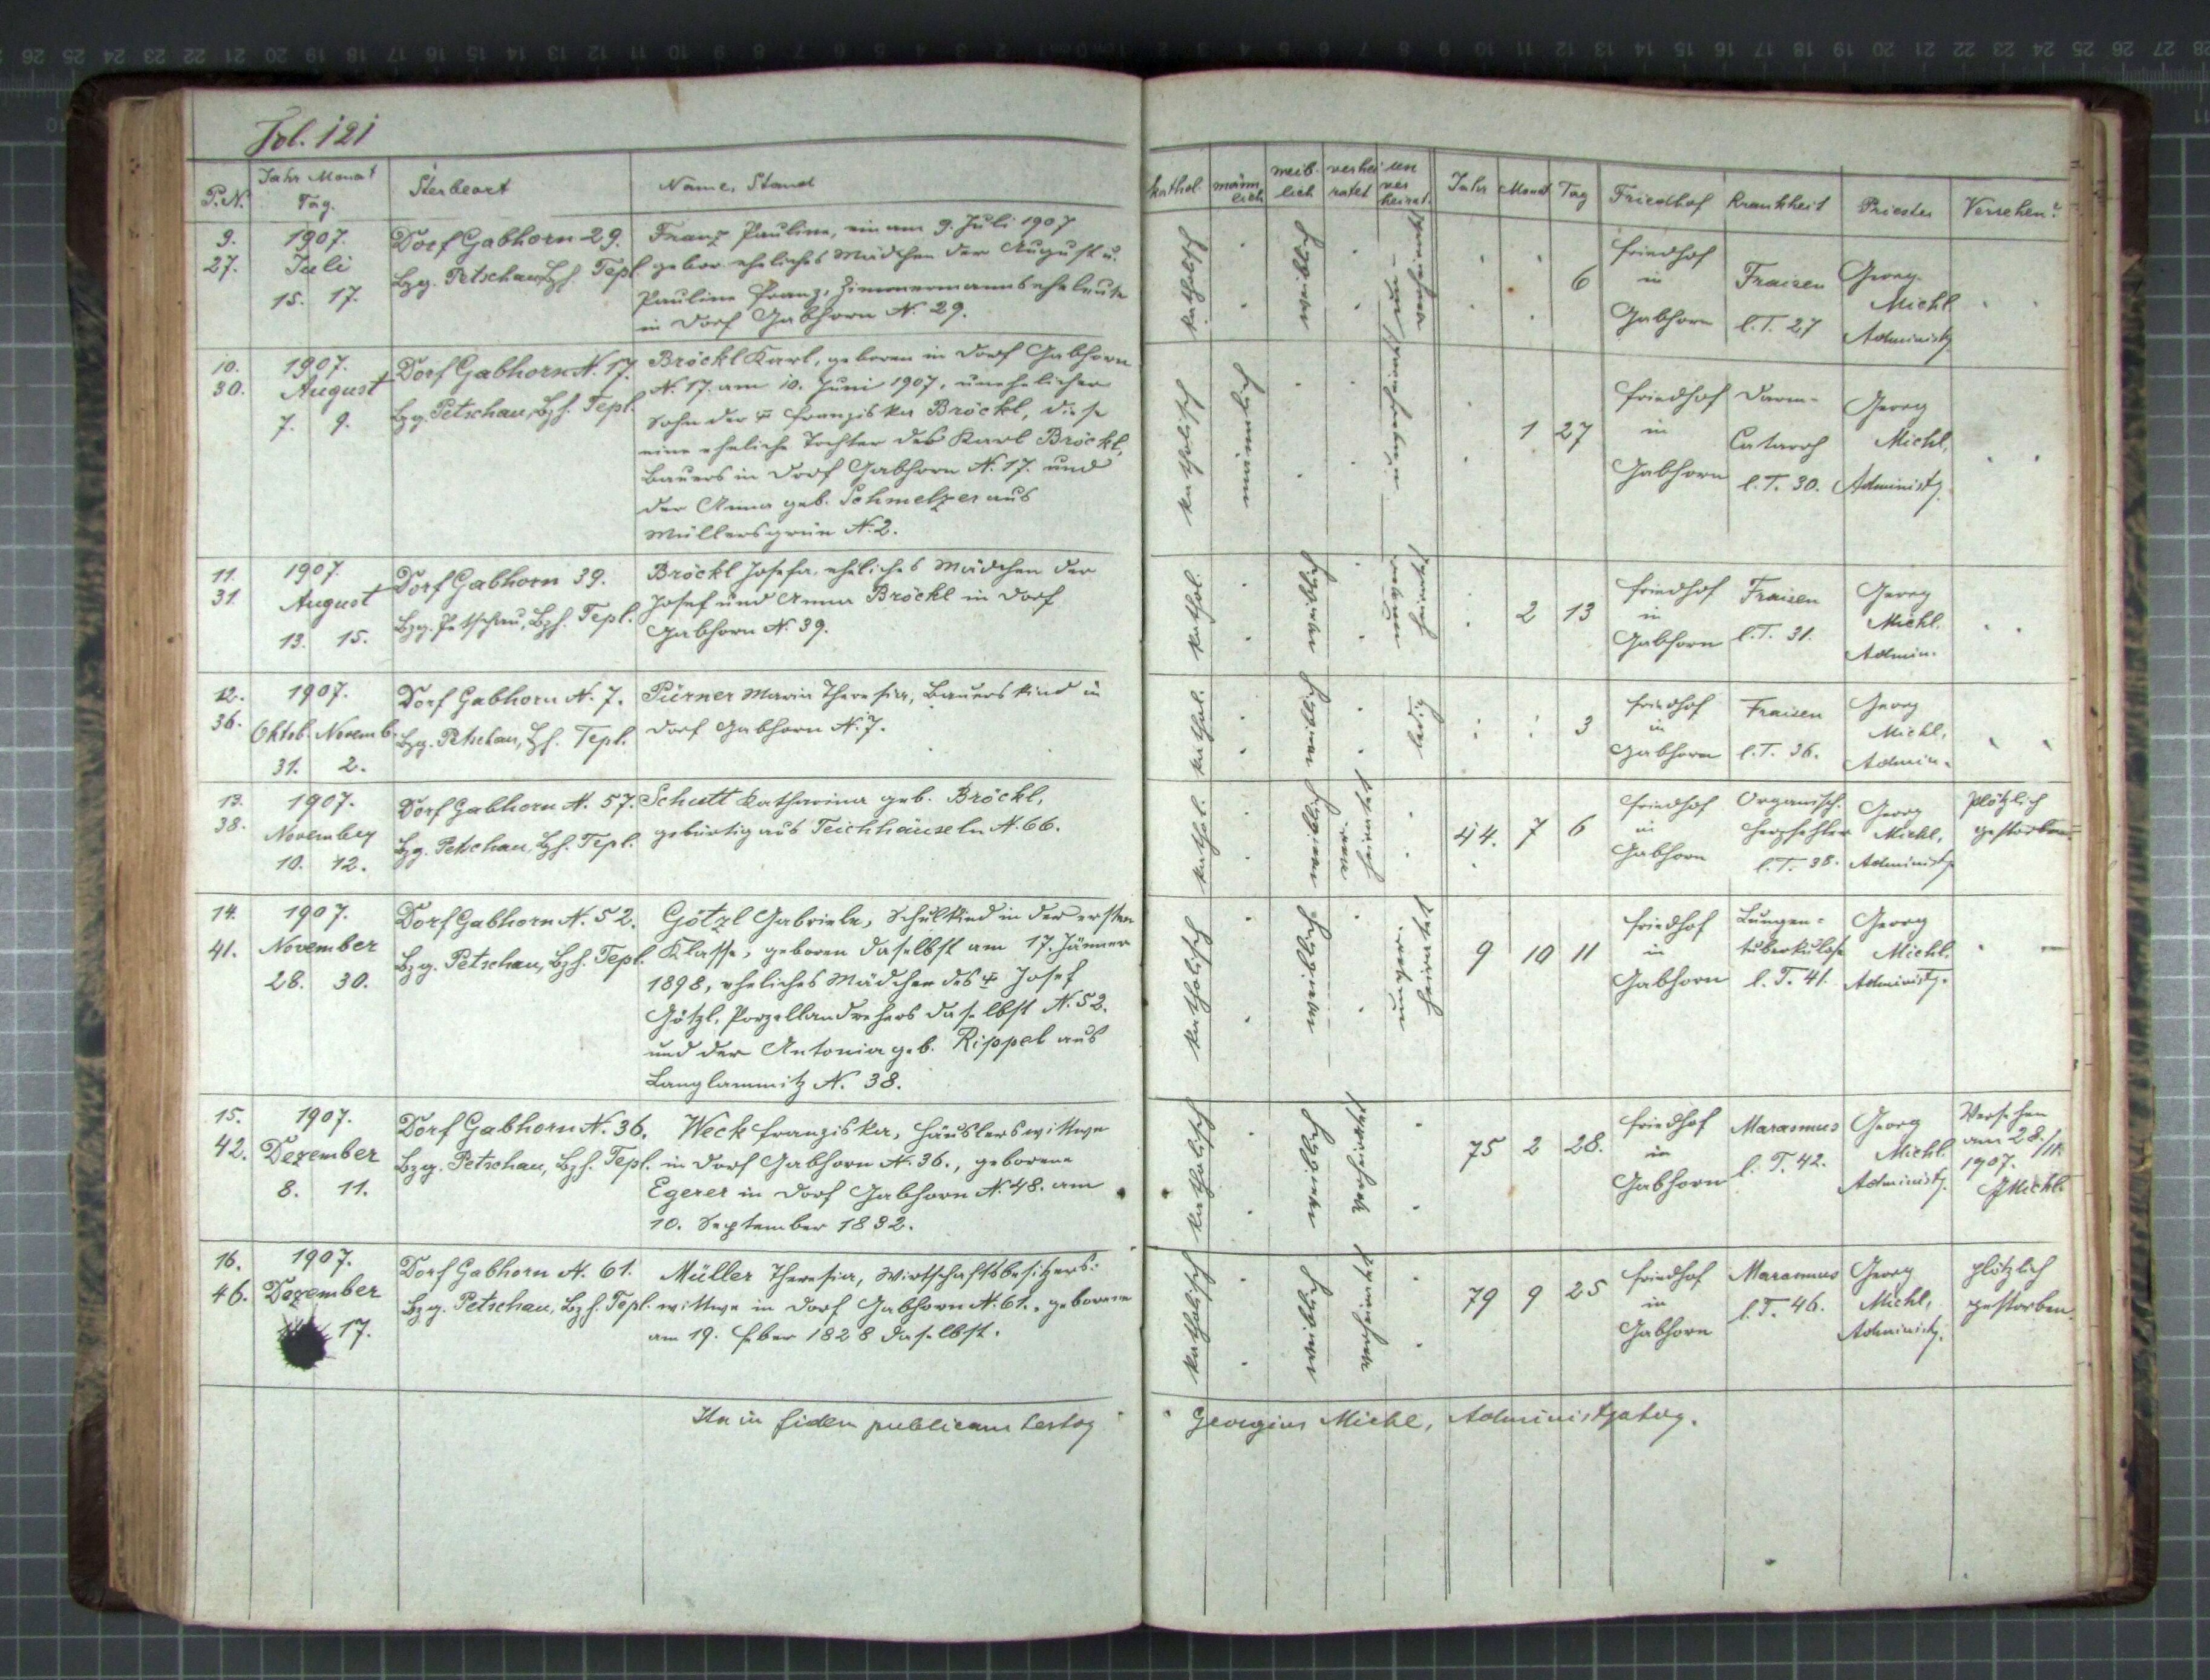 Fol. 121
P.N.
Jahr Monat
Tag.
Sterbeort
Name, Stand
9.
27.
1907.
Juli
15. 17.
Dorf Gabhorn 29.
Bzg. Petschau, Bzh. Tepl.
Franz Pauline, ein am 9. Juli 1907
gebor. eheliches Mädchen der August u.
Pauline Franz, Zimmermannseheleute
in Dorf Gabhorn N. 29.
10.
30.
1907.
August
7. 9.
Dorf Gabhorn N. 17.
Bzg. Petschau, Bzh. Tepl.
Bröckl Karl, geboren in Dorf Gabhorn
N. 17. am 10. Juni 1907, unehelicher
Sohn der Franziska Bröckl, diese
eine eheliche Tochter des Karl Bröckl,
Bauers in Dorf Gabhorn N. 17. und
der Anna geb. Schmelzer aus
Müllersgrün N. 2.
11.
31.
1907.
August
13. 15.
Dorf Gabhorn 39.
Bzg. Petschau, Bzh. Tepl.
Bröckl Josefa, eheliches Mädchen der
Josef und Anna Bröckl in Dorf
Gabhorn N. 39.
12.
36.
1907.
Oktob. Novemb.
31. 2.
Dorf Gabhorn N. 7.
Bzg. Petschau, Bzh. Tepl.
Pürner Maria Theresia, Bauerskind in
Dorf Gabhorn N. 7.
13.
38.
1907.
November
10. 12.
Dorf Gabhorn N. 57.
Bzg. Petschau, Bzh. Tepl.
Schutt Katharina geb. Bröckl,
gebürtig aus Teichhäuseln N. 66.
14.
41.
1907.
November
28. 30.
Dorf Gabhorn N. 52.
Bzg. Petschau, Bzh. Tepl.
Götzl Gabriele, Schulkind in der ersten
Klasse, geboren daselbst am 17. Jänner
1898, eheliches Mädchen des Josef
Götzl, Porzellandrehers daselbst N. 52.
und der Antonia geb. Rippel aus
Langlammitz N. 38.
15.
42.
1907.
Dezember
8. 11.
Dorf Gabhorn N. 36.
Bzg. Petschau, Bzh. Tepl.
Weck Franziska, Häuslerswittwe
in Dorf Gabhorn N. 36., geborene
Egerer in Dorf Gabhorn N. 48. am
10. September 1832.
16.
46.
1907.
Dezember
17.
Dorf Gabhorn N. 61.
Bzg. Petschau, Bzh. Tepl.
Müller Theresia, Wirtschaftsbesitzers-
wittwe in Dorf Gabhorn N. 61., geborene
am 19. Feber 1828 daselbst.
Ita in fidem publicam testor
kathol.
männ
lich
weib-
lich
verhei
ratet
un
ver
heirat.
Jahr
Monat
Tag
Friedhof
Krankheit
Priester
Versehen?
katholisch
weiblich
un-
verheiratet
6
Friedhof
in
Gabhorn
Fraisen
l. T. 27
Georg
Michl
Administr.
katholisch
männlich
unverheiratet
1
27
Friedhof
in
Gabhorn
Darm-
Catarrh
l. T. 30.
Georg
Michl,
Administr.
kathol.
weiblich
unver-
heiratet
2
13
Friedhof
in
Gabhorn
Fraisen
l. T. 31.
Georg
Michl.
Admin.
kathol.
weiblich
ledig
3
Friedhof
in
Gabhorn
Fraisen
l. T. 36.
Georg
Michl,
Admin.
kathol.
weiblich
ver-
heiratet
44.
7
6
Friedhof
in
Gabhorn
Organisch.
Herzfehler
l. T. 38.
Georg
Michl,
Administr.
Plötzlich
gestorben
katholisch
weiblich
unver-
heiratet
9
10
11
Friedhof
in
Gabhorn
Lungen-
tuberkulose
l. T. 41.
Georg
Michl.
Administr.
katholisch
weiblich
verheiratet
75
2
28.
Friedhof
in
Gabhorn
Marasmus
l. T. 42.
Georg
Michl.
Administr.
Versehen
am 28./11.
1907.
GMichl.
katholisch
weiblich
verheiratet
79
9
25
Friedhof
in
Gabhorn
Marasmus
l. T. 46.
Georg
Michl,
Administr.
plötzlich
gestorben
Georgius Michl, Administrator.